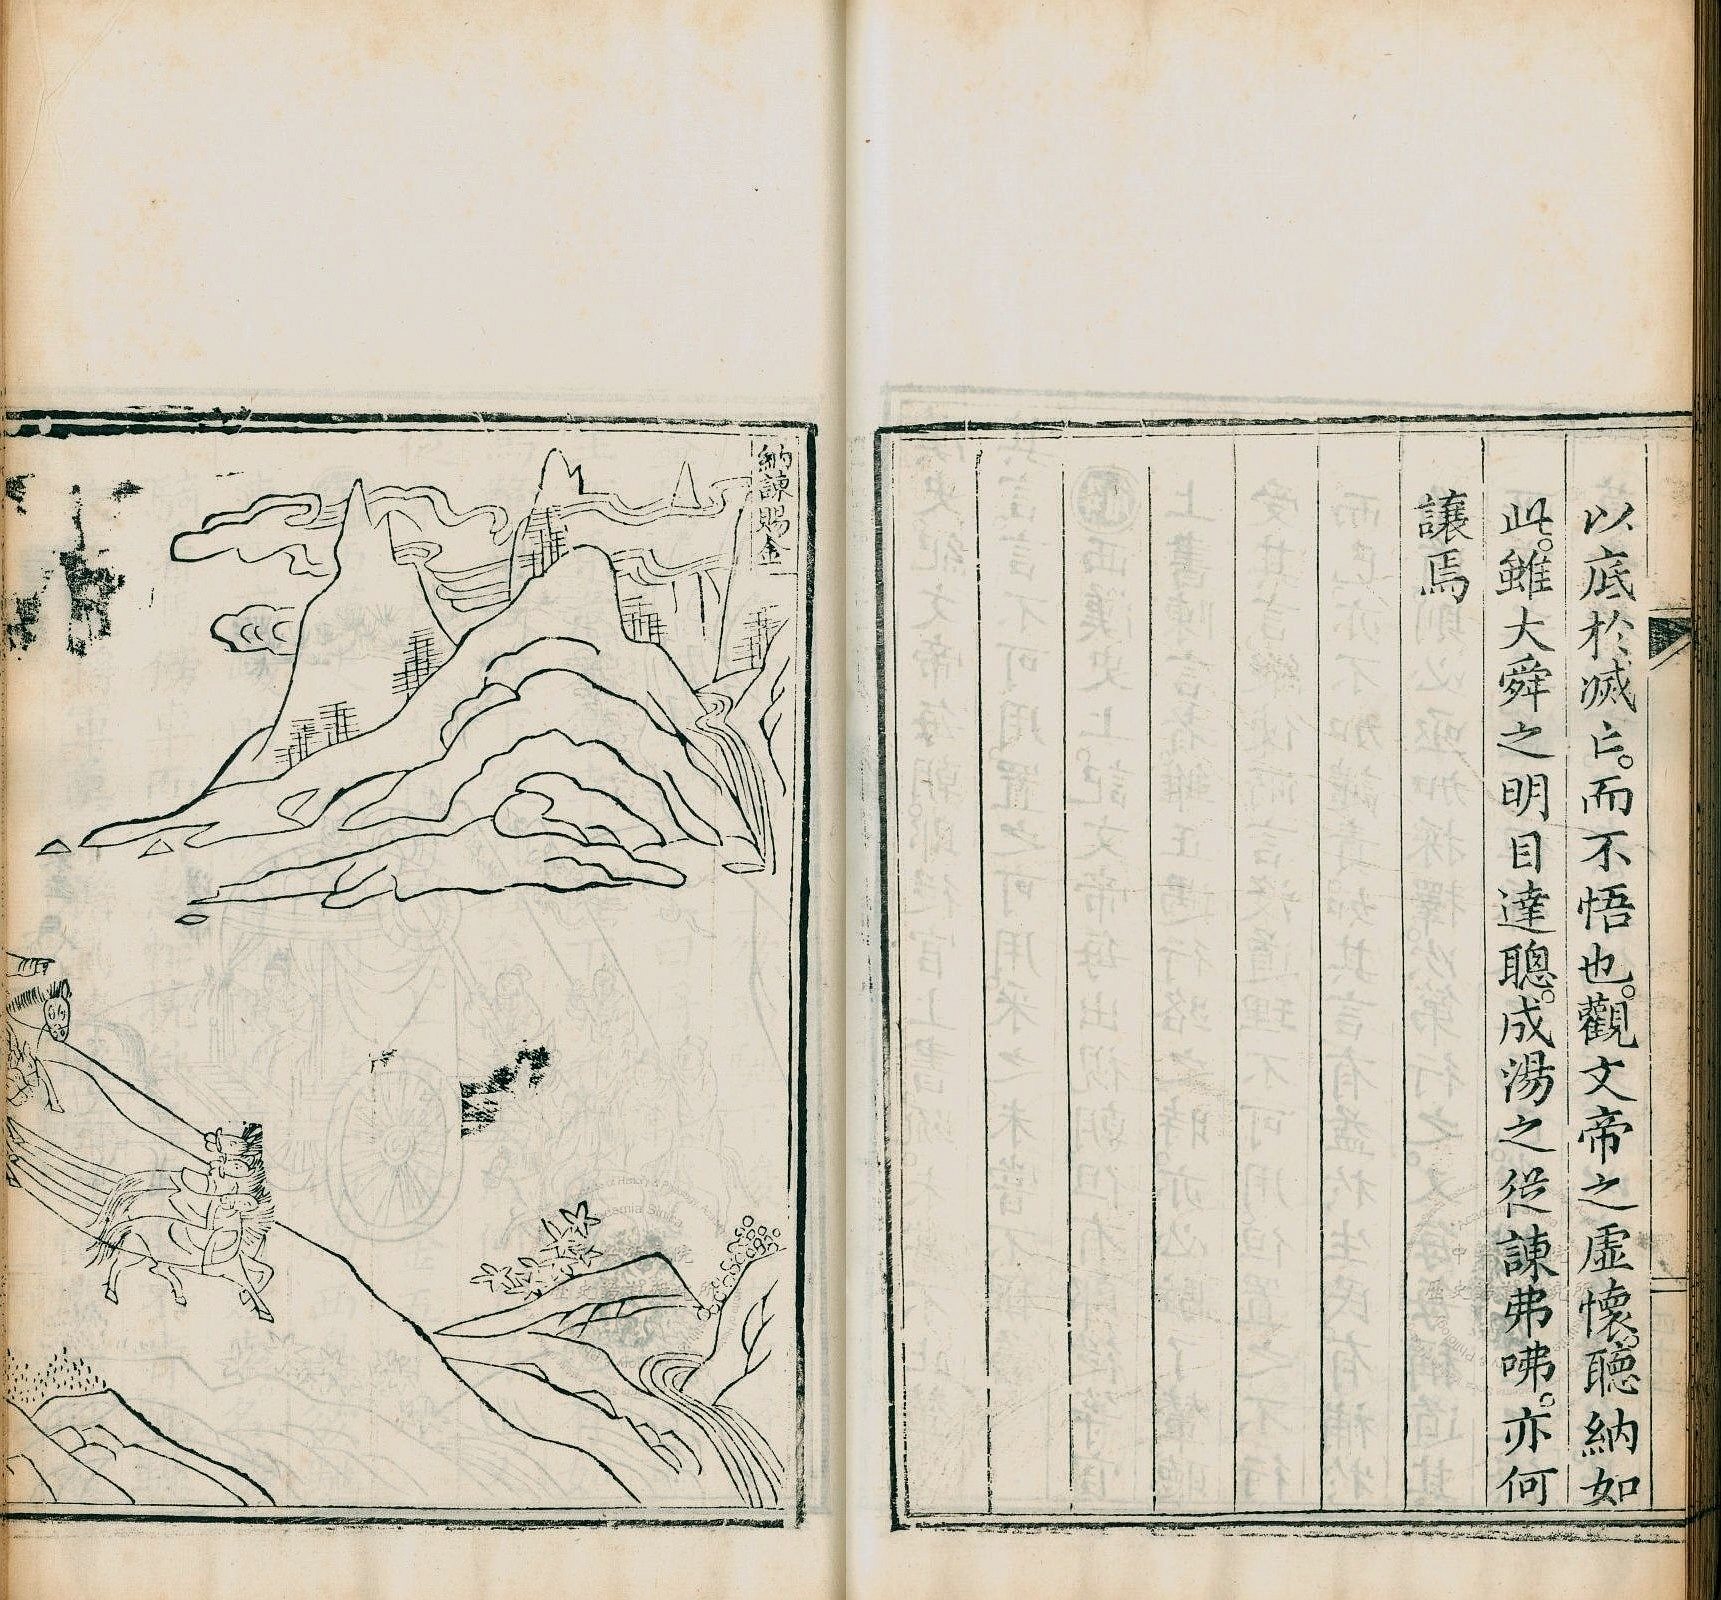 以底於滅亡。而不悟也。觀文帝之虛懷。聽納如
此。雖大舜之明目達聰。成湯之從諫弗咈。亦何
讓焉
納諫賜金